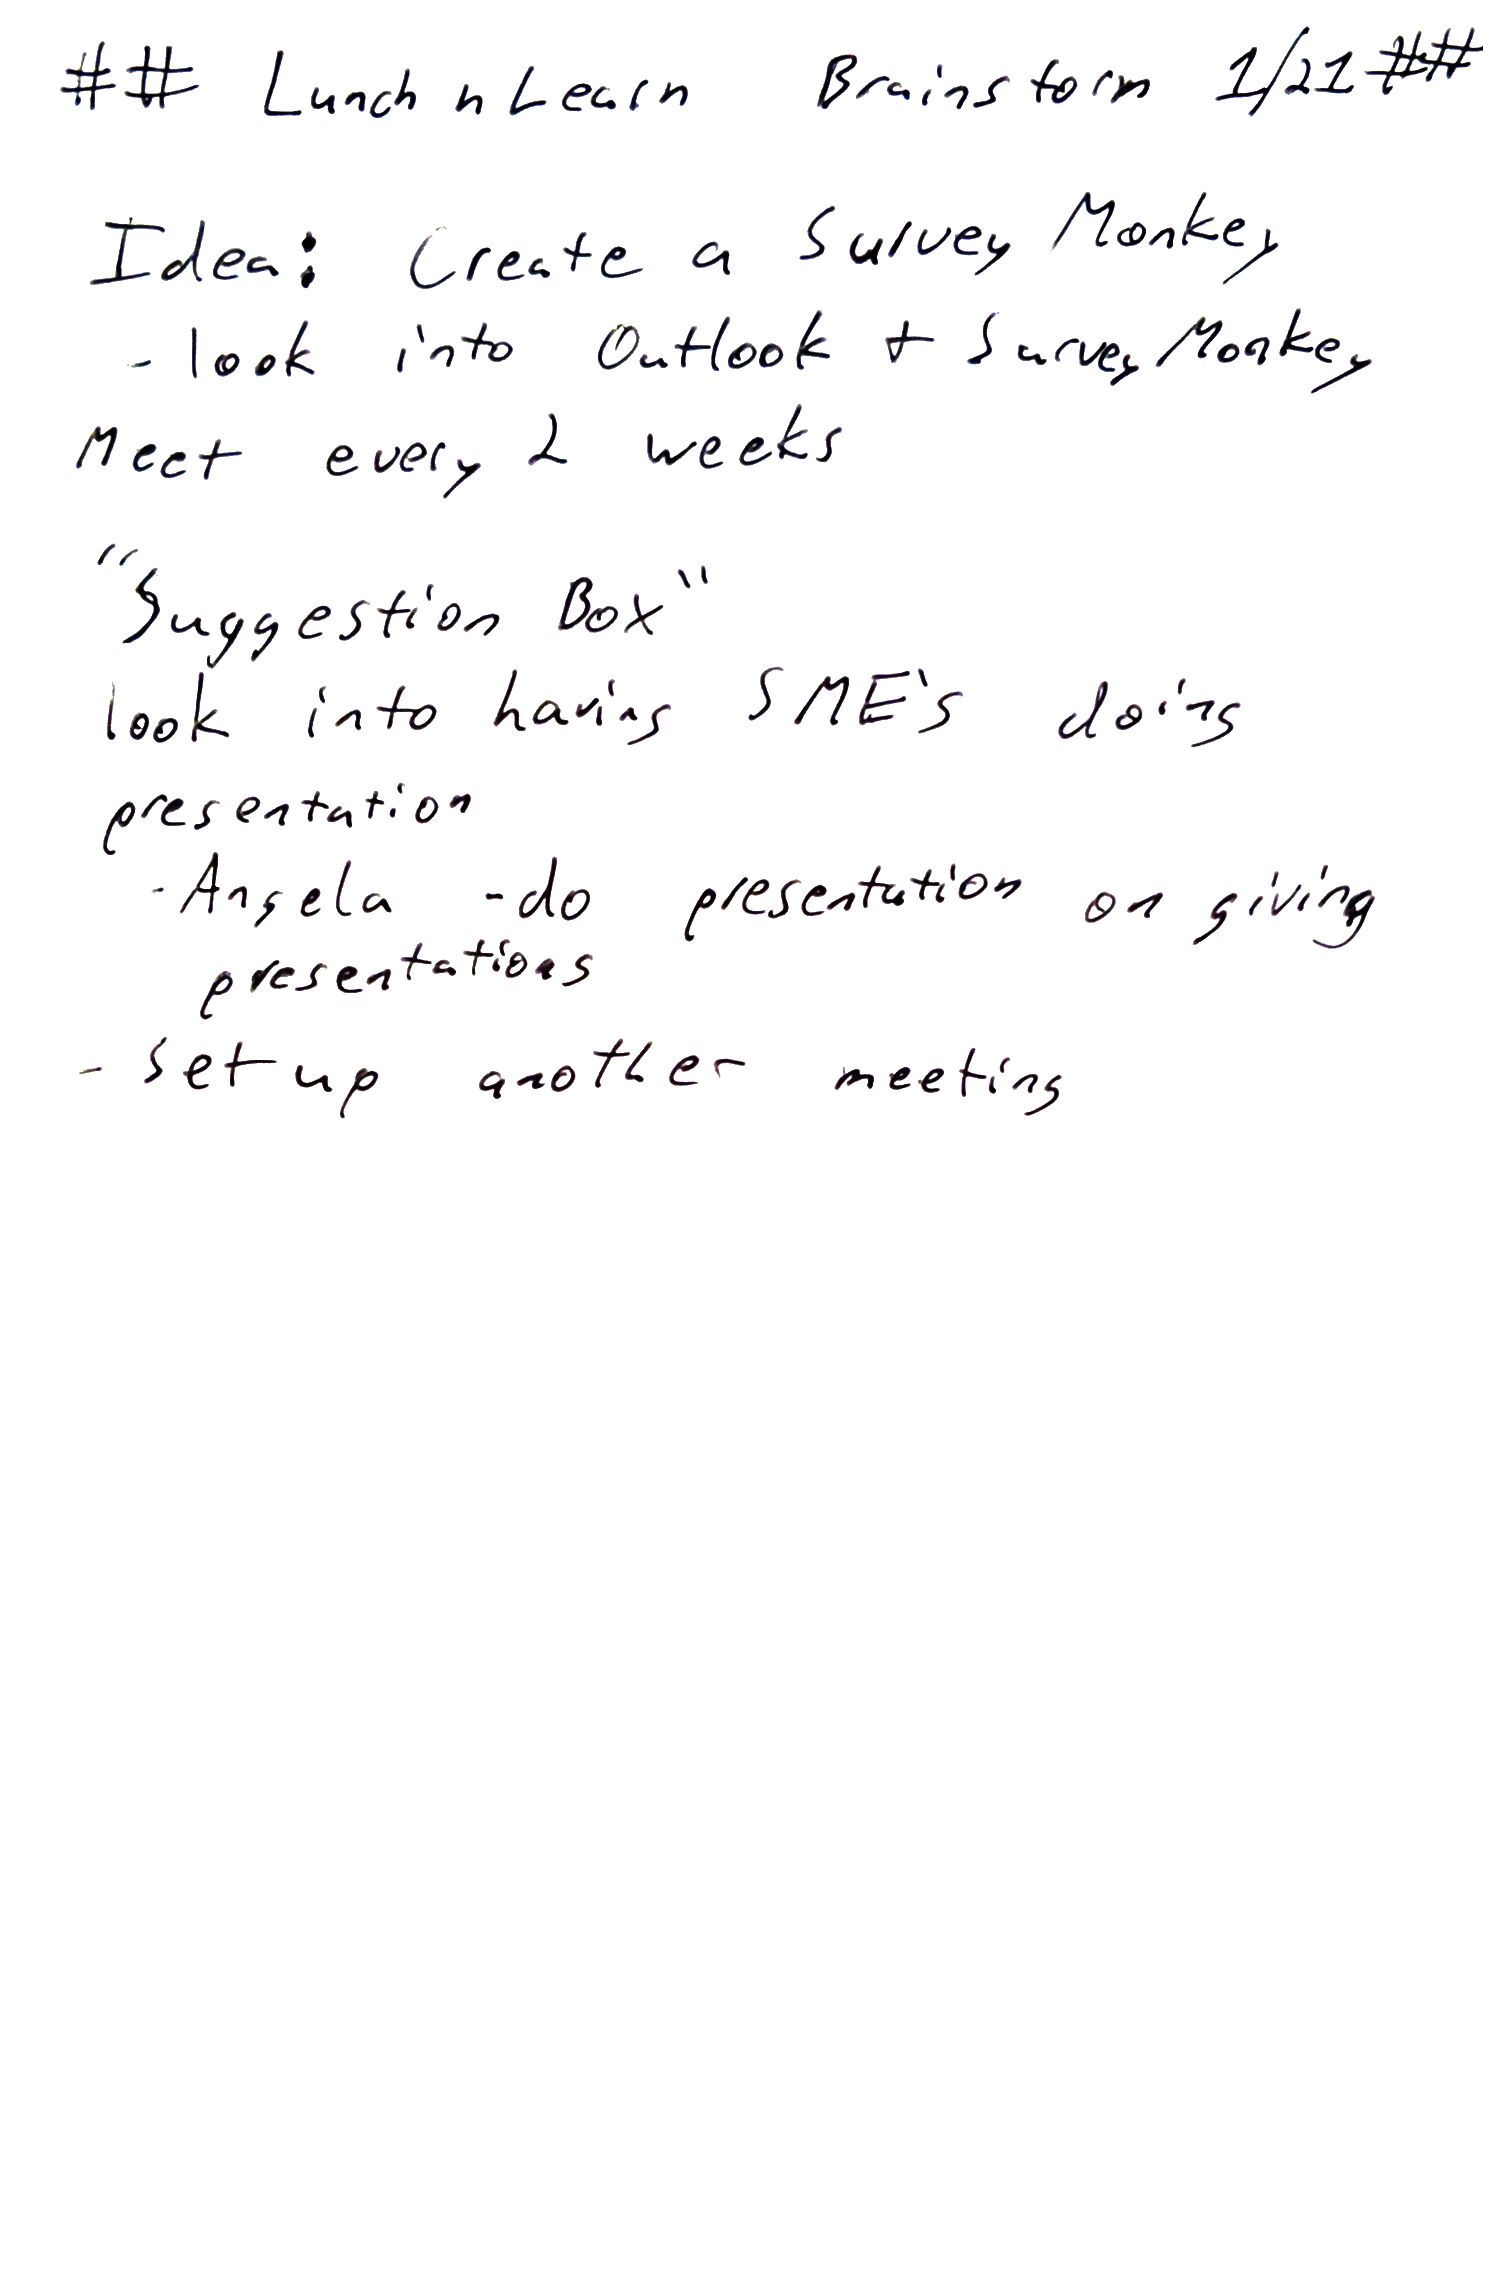 ## Lunch n Learn Brainstorm 1/21 ##
Idea: Create a Survey Monkey
- look into Outlook + SurveyMonkey
Meet every 2 weeks
"Suggestion Box"
look into having SME's doing
presentation
- Angela - do presentation on giving
presentations
- Set up another meeting